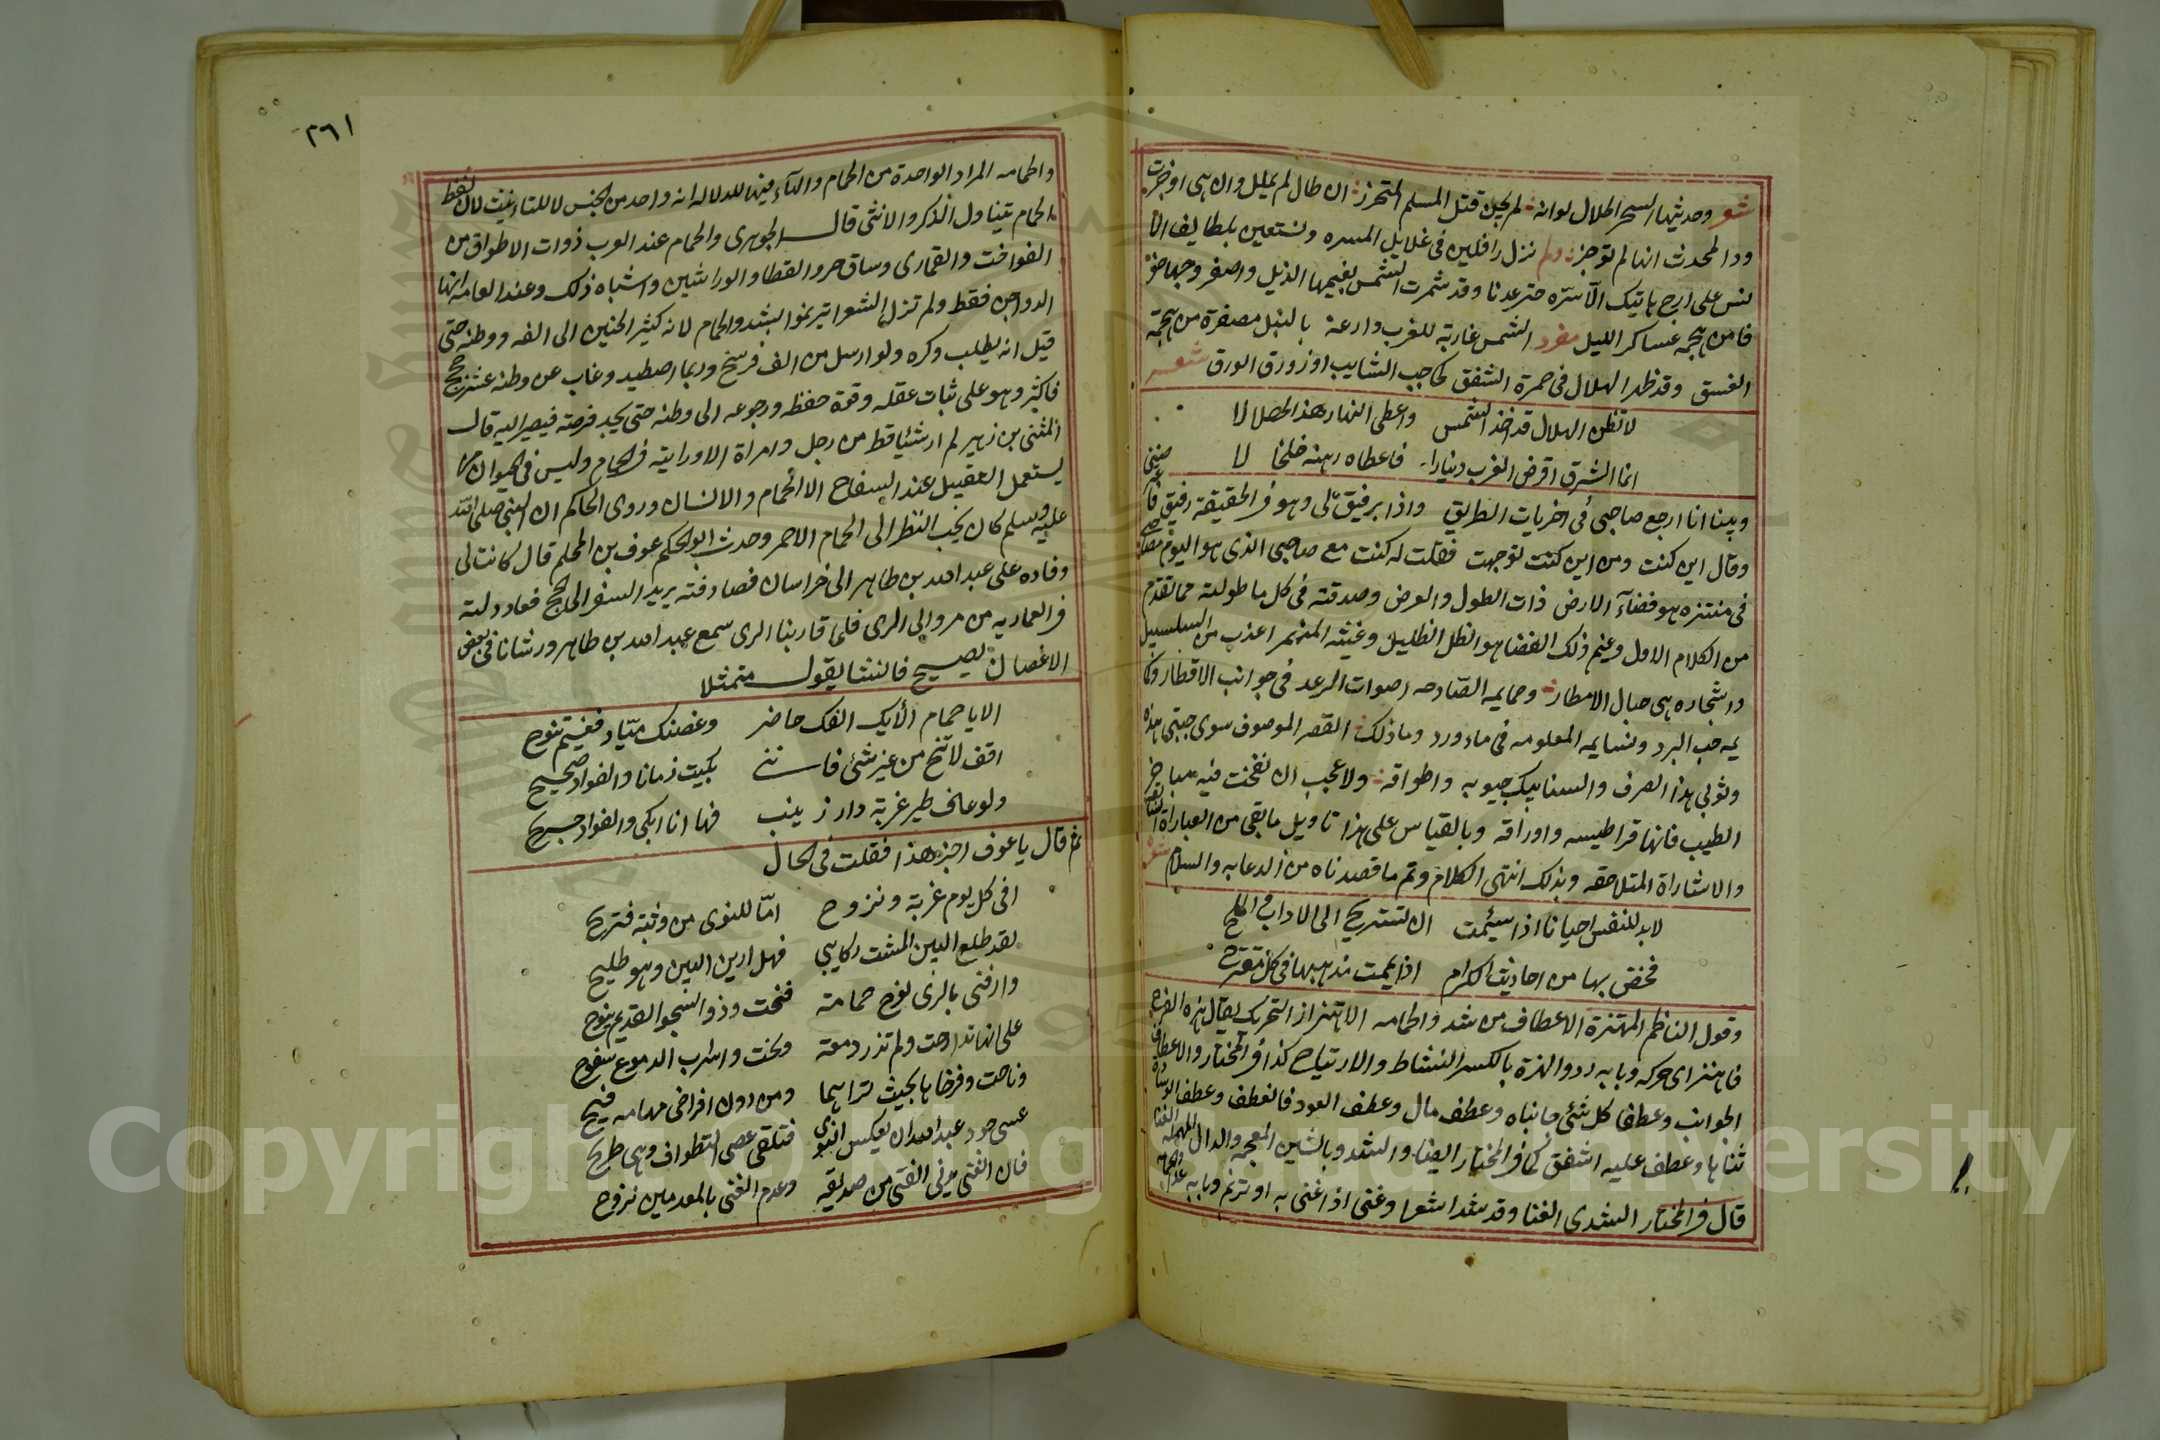 شعر وحديثها السحر الحلال لو انه لم يجن قتل المسلم المتحرز ان طال لم يملل وان هي اوجزت
ود المحدث انها لم توجز ولم نزل رافلين في غلايل المسره ونستعين بلطايف الا
نس على ارج هاتيك الاسره حتى عدنا وقد شمرت الشمس بغيمها الذيل واصفر وجهها خو
فا من هجمة عساكر الليل مفرد الشمس غاربة للغرب دارعة بالنبل مصفرة من هجمة
الغسق وقد ظهر الهلال في حمرة الشفق كحاجب الشايب او زورق الورق شعر
لا تظن الهلال قد اخذ الشمس واعطى النهار هذا الحصلالا
انما الشرق اقرض الغرب دينارا فاعطاه رهنه خلخا لا
وبينا انا ارجع صاحبي في اخريات الطريق واذا برفيق لي وهو في الحقيقة رفيق
وقال اين كنت ومن اين كنت توجهت فقلت له كنت مع صاحبي الذي هو اليوم
في منتزه هو فضآء الارض ذات الطول والعرض وصدقته في كل ما طولته مما تقدم
من الكلام الاول وغيم ذلك الفضا هو الظل الظليل وغيثه المنهمر اعذب من السلسبيل
واشجاره هي حبال الامطار وحمايمه الصادحه اصوات الرعد في جوانب الاقطار وكا
يمه حب البرد ونسايمه المعلومه في ماء ورد وما ذلك القصر الموصوف سوى جبتي هذه
وثوبي هذا الصرف والسنابيك جيوبه واطواقه ولا عجب ان نفحت فيه مباخر
الطيب فانها قراطيسه واوراقه وبالقياس على هذا تاويل ما بقي من العباراة
والاشاراة المتلاحقه وبذلك انتهى الكلام وتم ما قصدناه من الدعابه والسلام شعر
لابد للنفس احيانا اذا سيئمت ان تستريح الى الاداب والملح
فخض بها من احاديث الكرام اذا عميت مذاهبها في كل مقترح
وقول الناظم المهتزة الاعطاف من شدو الحمامه الاهتزاز التحريك يقال هزه
فاهتز اي حركه وبابه رد والهزة بالكسر النشاط والارتياح كذا في المختار والاعطاف
الجوانب وعطفا كل شئ جانباه وعطف مال وعطف العود فانعطف وعطف الوسادة
ثناها وعطف عليه اشفق كما في المختار ايضا والشدو بالشين المعجمه والدال المهمله الغنا
قال في المختار الشدى الغنا وقد شدا شعرا وغنى اذا غنى به او ترنم وبابه عدا
٢٦١
والحمامه المراد الواحدة من الحمام والتآء فيها للدلاله انه واحد من الجنس لا للتانيث لان لفظ
الحمام يتناول الذكر والانثى قال الجوهري والحمام عند العرب ذوات الاطواق من
الفواخت والقماري وساق حر والقطا والوراشين واشباه ذلك وعند العامه انها
الدواجن فقط ولم تزل الشعرا تترنموا بشدو الحمام لانه كثير الحنين الى الفه ووطنه حتى
قيل انه يطلب وكره ولو ارسل من الف فرسخ وربما اصطيد وغاب عن وطنه عشر حجج
فاكثر وهو على ثبات عقله وقوة حفظه ورجوعه الى وطنه حتى يجد فرصته فيصير اليه قال
المثنى بن زهير لم ار شيئا قط من رجل وامراة الا ورايته في الحمام وليس في الحيوان ما
يستعمل التقبيل عند السفاح الا الحمام والانسان وروى الحاكم ان النبي صلى الله
عليه وسلم كان يحب النظر الى الحمام الاحمر وحدث ابو الحكم عوف بن المحلم قال كانت لي
وفاده على عبد الله بن طاهر الى خراسان فصادفته يريد السفر الى الحج فعادلته
في العماريه من مرو الى الري فلما قاربنا الري سمع عبد الله بن طاهر ورشانا في بعض
الاغصان يصيح فانشا يقول متمثلا
الا يا حمام الأيك الفك حاضر وغصنك ميّاد ففيم تنوح
افق لا تنح من غير شئ فانني بكيت زمانا والفواد صحيح
ولوعا فطير غربة دار زينب فها انا ابكي والفواد جريح
ثم قال يا عوف اجز هذا فقلت في الحال
افى كل يوم غربة ونزوح امّا للنوى من وثبة فتريح
لقد طلع البين المشت ركايبي فهل ارين البين وهو طليح
وارقني بالري نوح حمامة فنحت وذو الشجو القديم ينوح
على انها ناحت ولم تذر دمعة ونحت واسراب الدموع سفوح
وناحت وفرخاها بحيث تراهما ومن دون افراخي مهامه فيح
عسى جود عبد الله ان يعكس النوى فتلقى عصى التطواف وهي طريح
فان الغنى يدني الفتى من صديقه وعدم الغنى بالمعدمين نزوح
Copyright © King Saud University